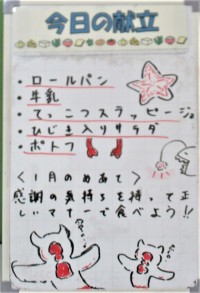 今日の献立
・ロールパン
・牛乳
・てっこつスラッピージョ
・ひじき入りサラダ
・ポトフ
<1月のめあて>
感謝の気持ちを持って正
しいマナーで食べよう!!